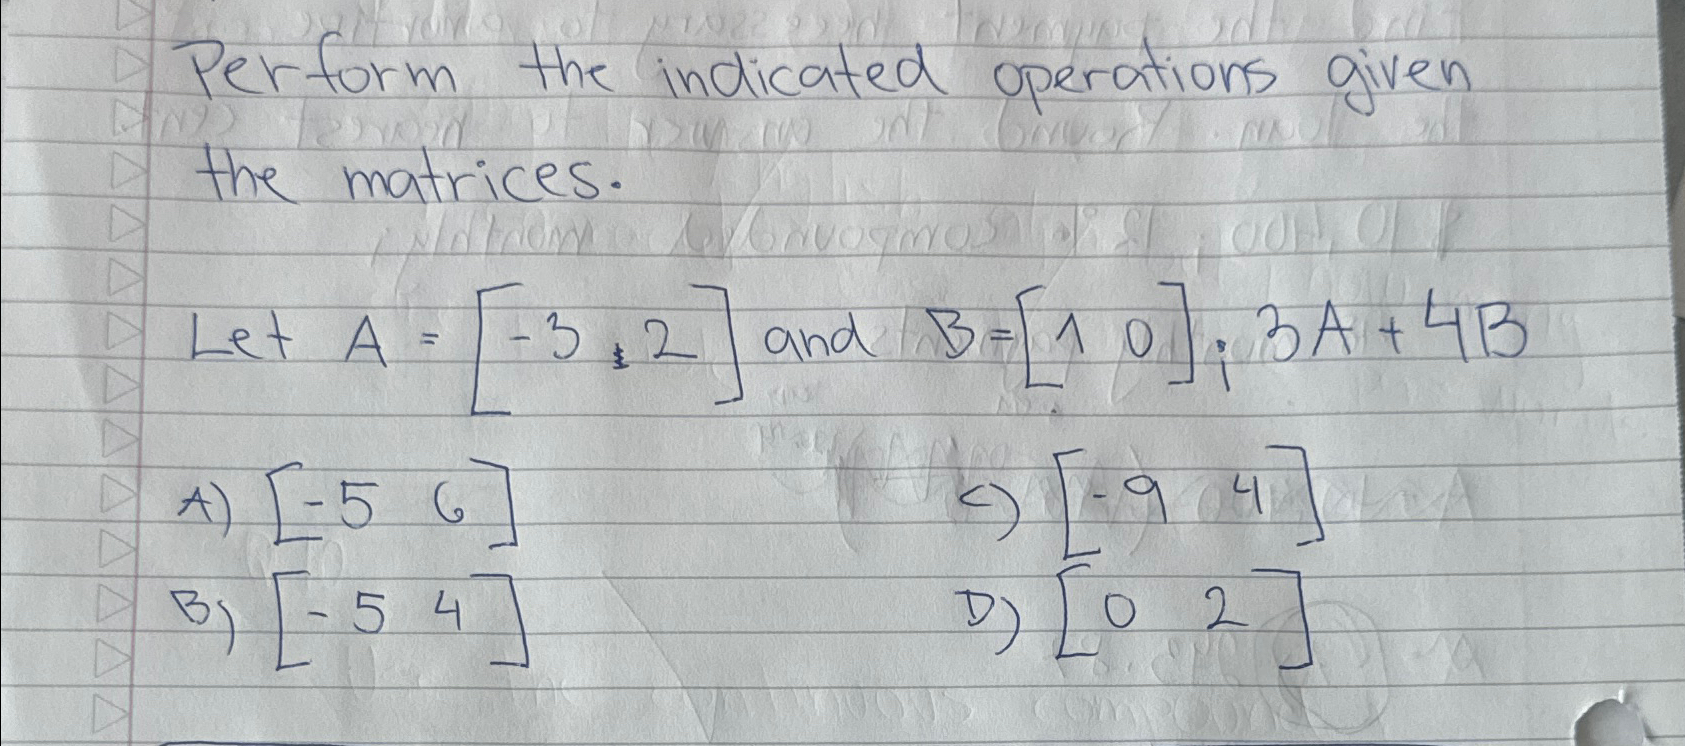 Perform the indicated operations given
the matrices.
Let A = [-3 2] and B=[1 0]; 3A + 4B
A) [-5 6] C) [-9 4]
B) [-5 4] D) [0 2]